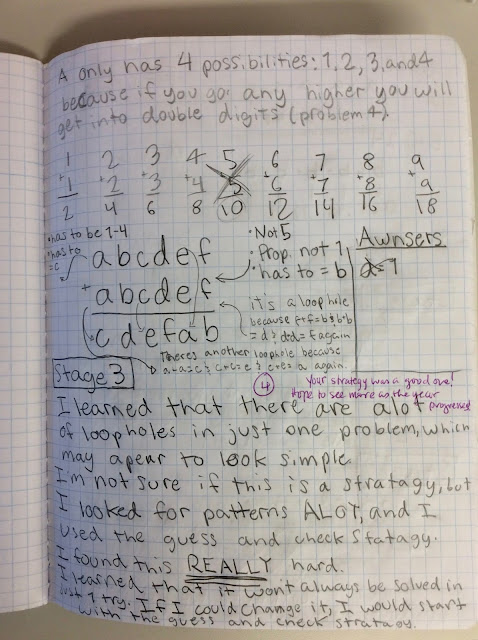 A only has 4 possibilities: 1, 2, 3, and 4
because if you go any higher you will
get into double digits (problem 4).
1 2 3 4 5 6 7 8 9
+1 +2 +3 +4 +5 +6 +7 +8 +9
2 4 6 8 10 12 14 16 18
•has to be 1-4
•has to = c
abcdef
+abcdef
cdefab
•Not 5
•Prop. not 1
•has to = b
it's a loophole
because f+f=b & b+b
=d & d+d=f again
Theres another loophole because
a+a=c & c+c=e & e+e=a again.
Awnsers
d=1
Stage 3
4
Your strategy was a good one!
Hope to see more as the year
progresses
I learned that there are alot
of loopholes in just one problem, which
may apear to look simple.
I'm not sure if this is a stratagy, but
I looked for patterns ALOT, and I
used the guess and check statagy.
I found this REALLY hard.
I learned that it won't always be solved in
just 1 try. If I could change it, I would start
with the guess and check stratagy.